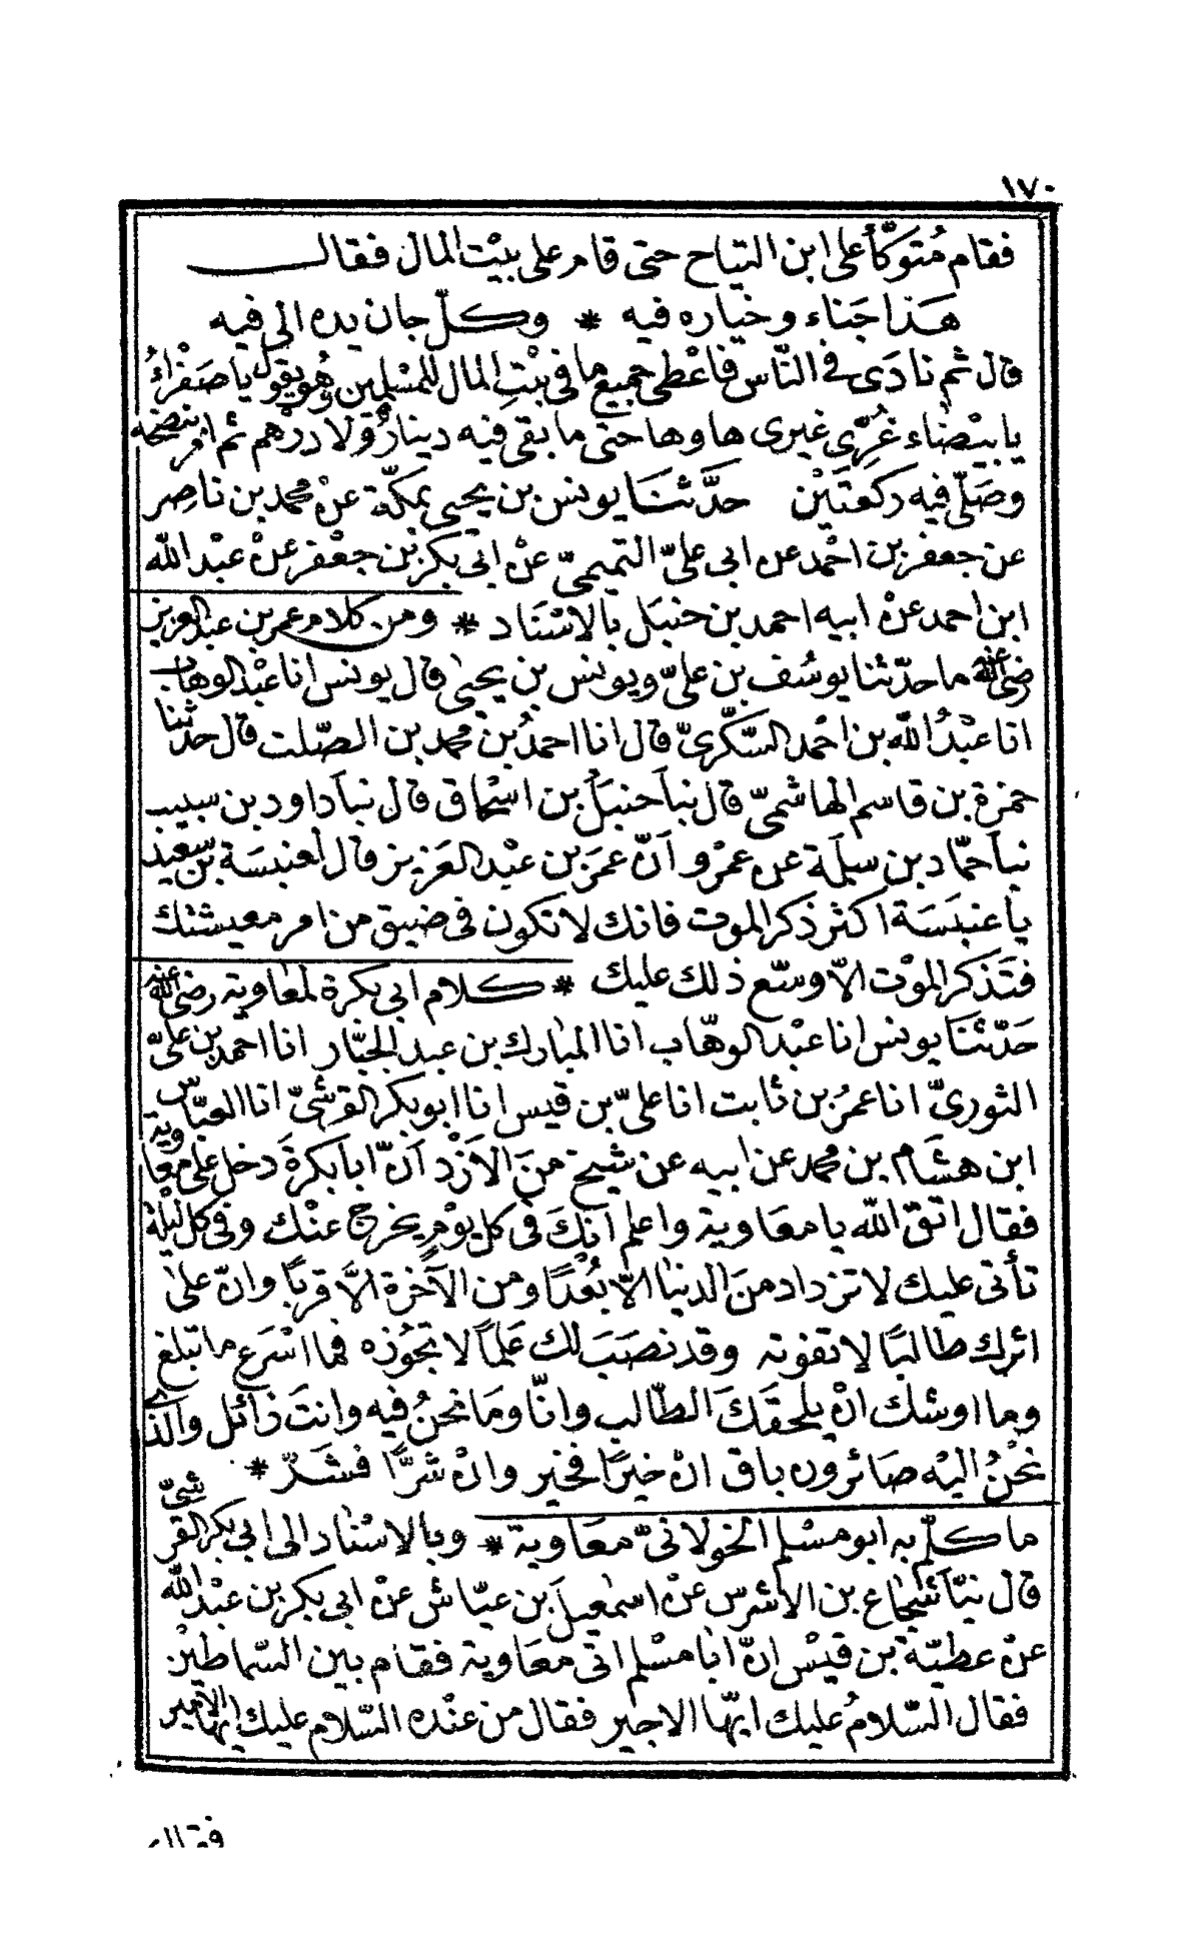 ١٧٠
فقام مُتوكّأ على ابن التياح حتى قام على بيْت المال فقال
هَذا جَناء وخياره فيه * وكلّ جان يده الى فيه
قال ثم نادَى في النّاس فاعْطى جميع ما فى بيْتِ المال للمسْلمين وهُو يقول يا صَفْراءُ
يا بيْضاء غُرِّى غيرى ها وها حتى ما بقى فيه دينارٌ ولا درهم ثم امر بنضحه
وصَلّى فيه ركعتَيْن حدَّثنَا يونس بن يحيى بمكّة عنْ محمد بن ناصِر
عن جعفر بن احْمد عن ابى علىّ التميمىّ عنْ ابى بكر بْن جعْفر عنْ عبْد الله
ابن احمد عنْ ابيه احمد بن حنبَل بالاسْنَاد * ومن كلام عمر بن عبد العزيز
رضى الله عنه ما حدّثنا يوسُف بن علىّ ويونس بن يحيى قال يونس انا عبْد الوهاب
انا عبْدُ الله بن احْمد السّكّرىّ قال انا احمدُ بن محمد بن الصّلت قال حدثنا
حمزة بن قاسم الهاشمىّ قال نبأ حنبَلُ بن اسْحاق قال نبأ داود بن سبيب
نبأ حمّاد بن سلمة عن عمْرو أنّ عمَر بن عبْد العَزيز قال لعنبسَة بن سعيد
يا عنبَسَة اكثر ذكر الموت فانك لا تكون فى ضيق من امر معيشتك
فتَذكر الموْت الاّ وسّع ذلك عليك * كلام ابى بكرة لمعاوية رضى الله عنه
حَدّثنَا يونس انا عبْد الوهّاب انا المبارك بن عبد الجبّار انا احمد بن علىّ
الثورىّ انا عمرُ بن ثابت انا علىّ بن قيس انا ابو بكر القرشىّ انا العبّاس
ابن هشَام بن محمد عن ابيه عن شيخ منَ الاَزْد أنّ ابا بكرةَ دخل على معاوية
فقال اتق الله يا معاوية واعلم انكَ فى كل يوْمٍ يخرج عنْك وفى كل ليْلة
تأتى عليك لا تزداد منَ الدنيا الاّ بعْدًا ومن الآخرة الاَّ قربًا وانّ على
اثرك طالبًا لا تفوته وقد نصَبَ لك عَلمًا لا تجُوزه فما اسْرَع ما تبلغ
وما اوشك انْ يلحقَكَ الطّالب وانّا ومَا نحنُ فيه وانتَ زائل والذى
نحْنُ اليْه صَائرون باق انْ خيرًا فخير وانْ شرًّا فشَرّ *
ما كلّم به ابو مسْلم الخولانىّ معَاوية * وبالاسْناد الى ابى بكر القرشىّ
قال نبّأ شجاع بن الاشرس عنْ اسمعيلَ بن عيّاش عنْ ابى بكر بن عبْد الله
عنْ عطيّة بن قيْس انّ ابا مسْلم اتى معَاوية فقام بين السّماطيْن
فقال السّلامُ عليك ايّها الاجير فقال من عنْده السّلام عليك ايّها الامير
فقال